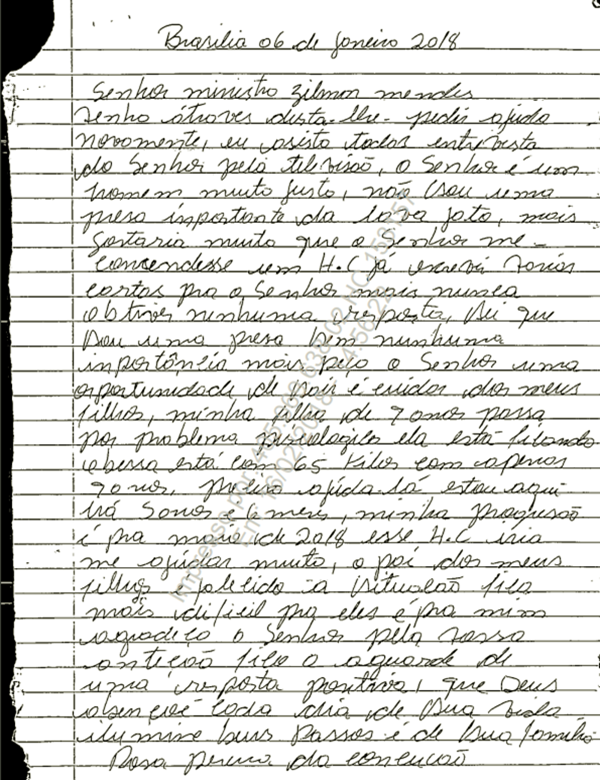 Brasilia 06 de Janeiro 2018
Senhor ministro Zilmar mendes
venho átraves desta-lhe- pedir ajuda
novomente, eu asisto todas entrevista
do Senhor pela televisão, o Senhor é um
homem muito justo, não sou uma
presa inportante da lava jato, mais
gostaria muito que o Senhor me-
concendesse um H.C já escrevi varias
cartas pra o Senhor mais nunca
obtive nenhuma resposta, Sei que
Sou uma presa bem nunhuma
inportância mais peço o Senhor uma
oportunidade de cuidar dos meus
filhos, minha filha de 9 anos passa
por problema pisicologico ela está ficando
obessa está com 65 Kilos com apenas
9 anos, preciso ajuda-lá estou aqui
há 3 anos é 6 meses, minha progresão
é pra maio de 2018 esse H.C iria
me ajudar muito, o pai dos meus
filhos falecido a situacão fica
mais dificil pra eles é pra mim
agradeço o Senhor pela vossa
anteção fico o aguarde de
uma resposta positiva, que Deus
abençoe cada dia de Sua vida
ilumine Seus Passos é de Sua familia
Rosa da conceicão
Impresso por: